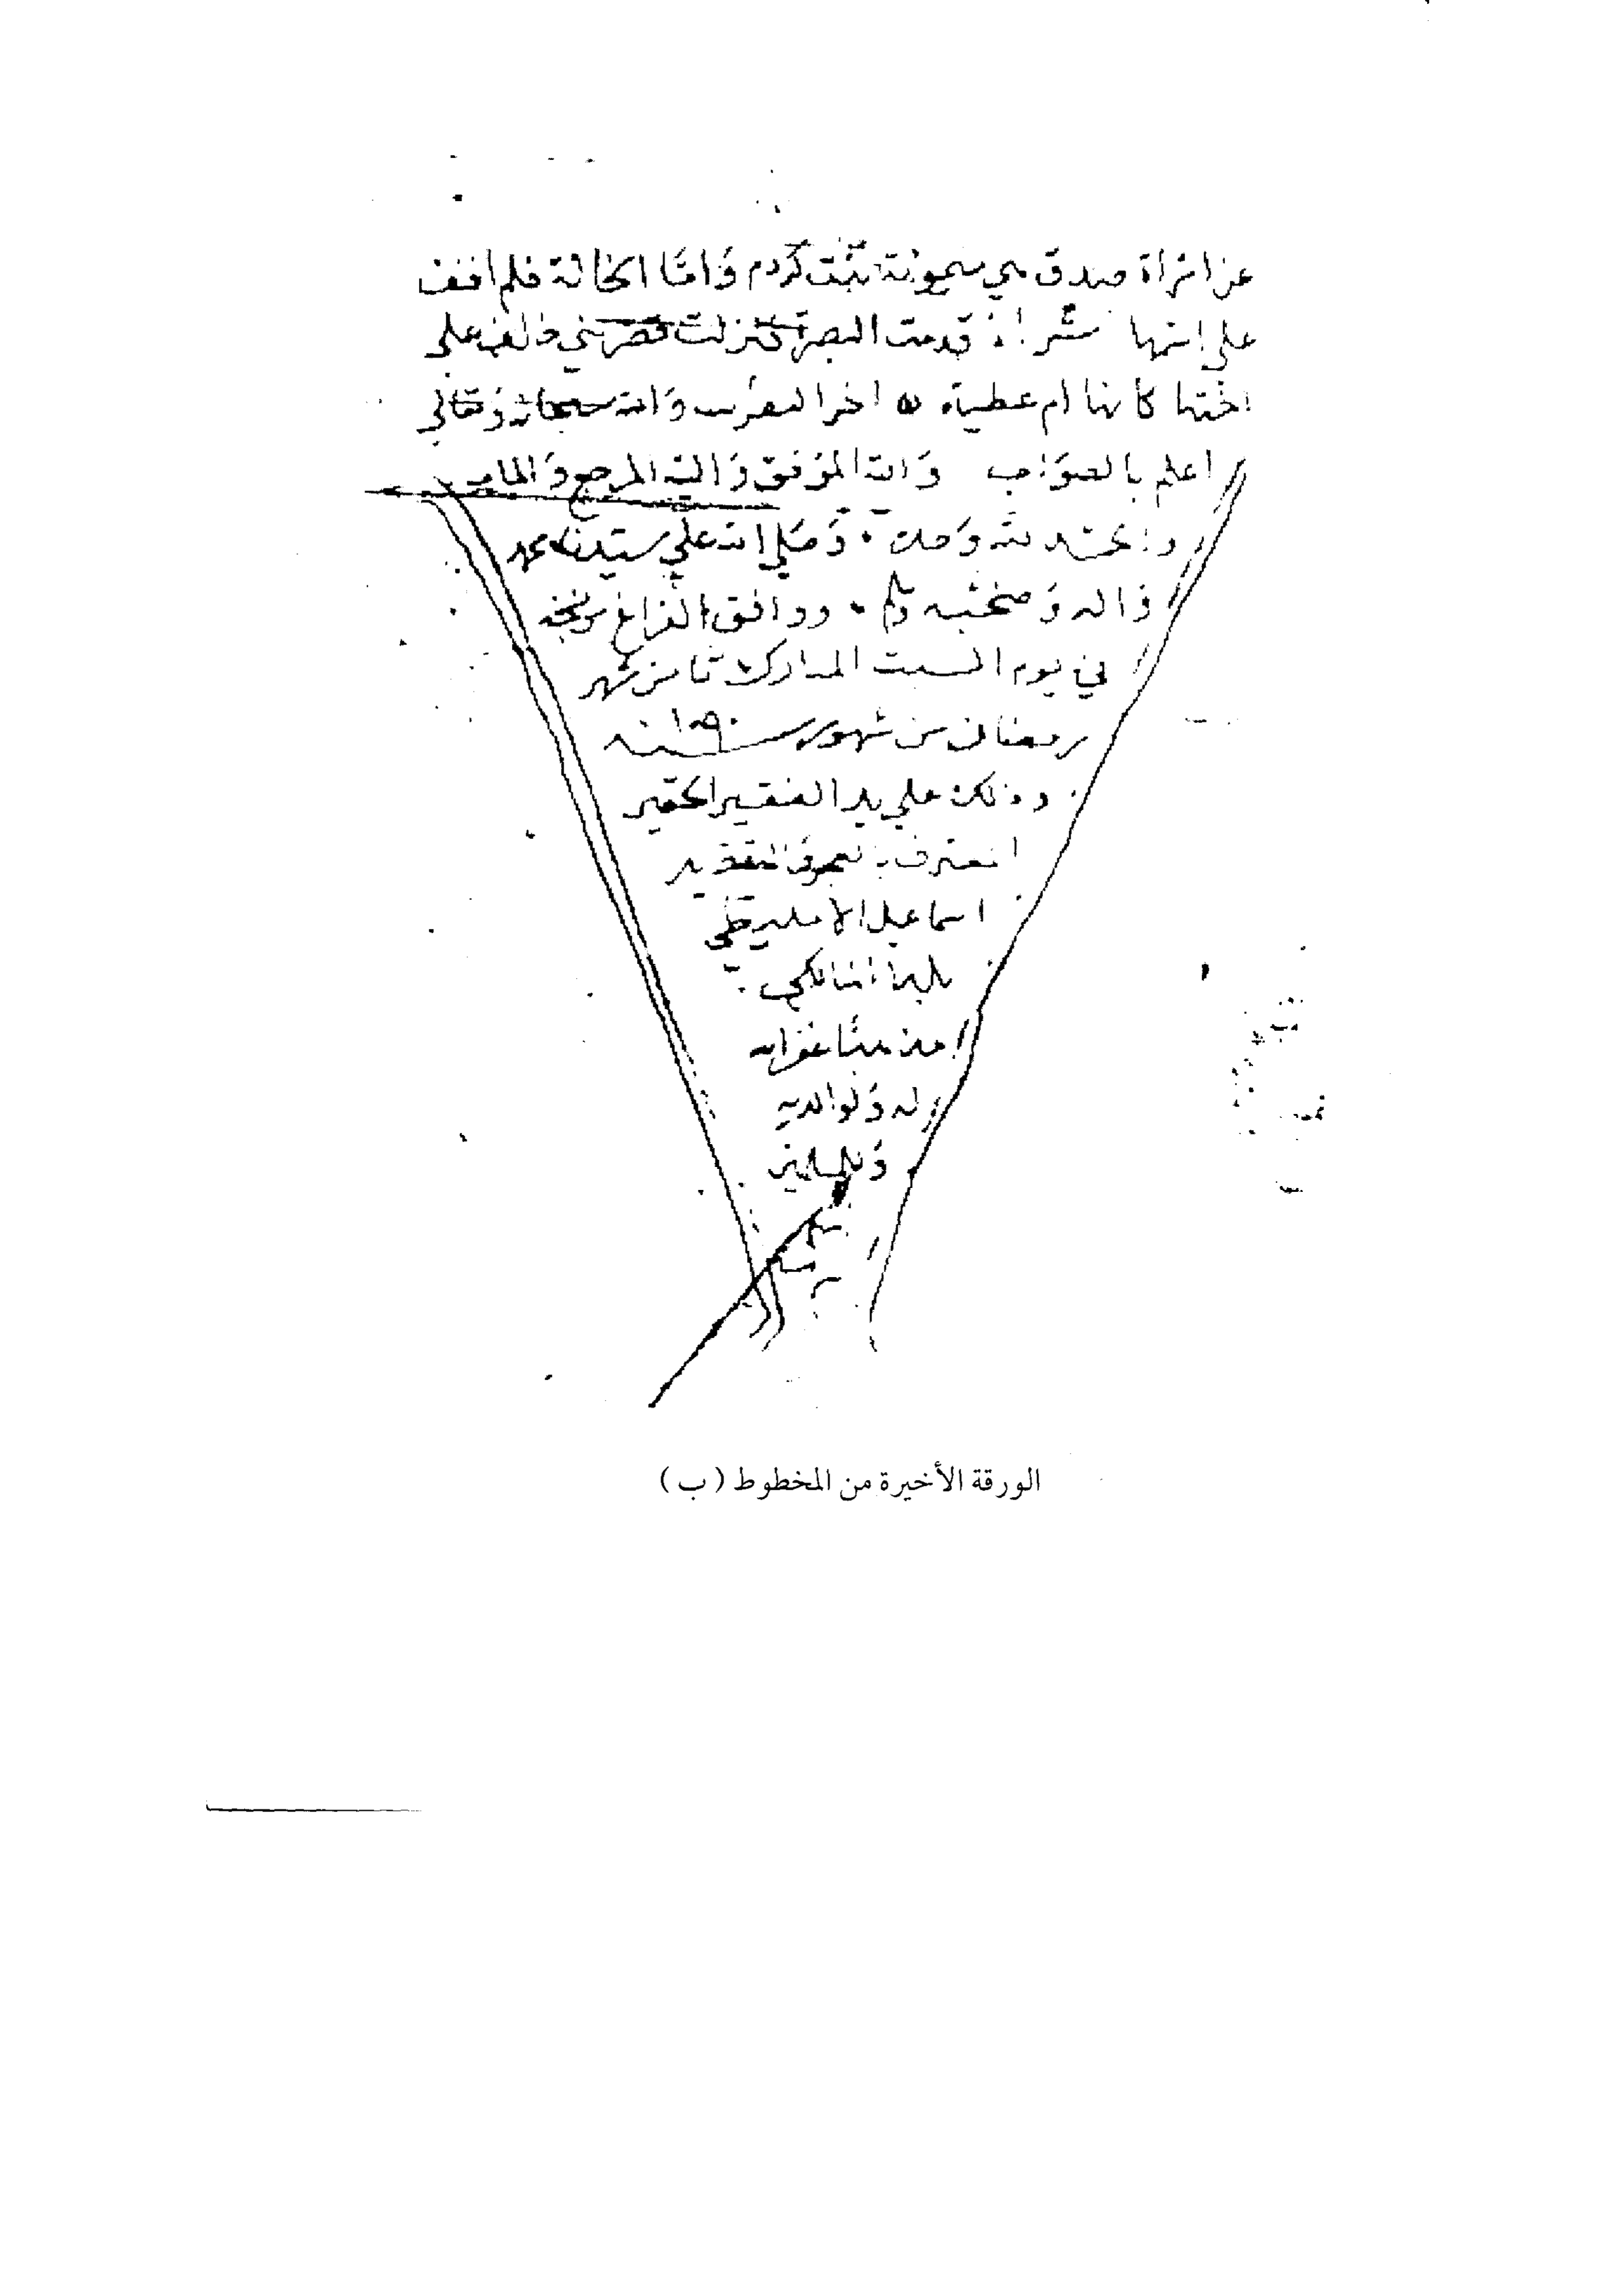 عن امرأة صدق هي ميمونة بنت كردم وَامّا الخالة فلم اقف
على اسمها امراة قدمت البصرة فنزلت قصر بني خلف على
اختها كانها ام عطية ه اخر التقريب وَالله سبحانه وَتعالى
اعلم بالصوَاب وَالله الموَفق وَاليه المرجع وَالمآب
والحمد لله وَحده وَصَلى الله على سيدنا محمد
وَاله وَصحبه وَسلم ووافق الفراغ من نسخه
في يوم السبت المبارك ثامن شهر
رمضان من شهور سنة ١٠٩٠
وذلك على يد الفقير الحقير
المعترف بالعجز وَالتقصير
اسماعيل الا
بلدا المالكي
مذهبًا غفر الله
له وَلوالديه
وَللمسلمين
الورقة الأخيرة من المخطوط ( ب )